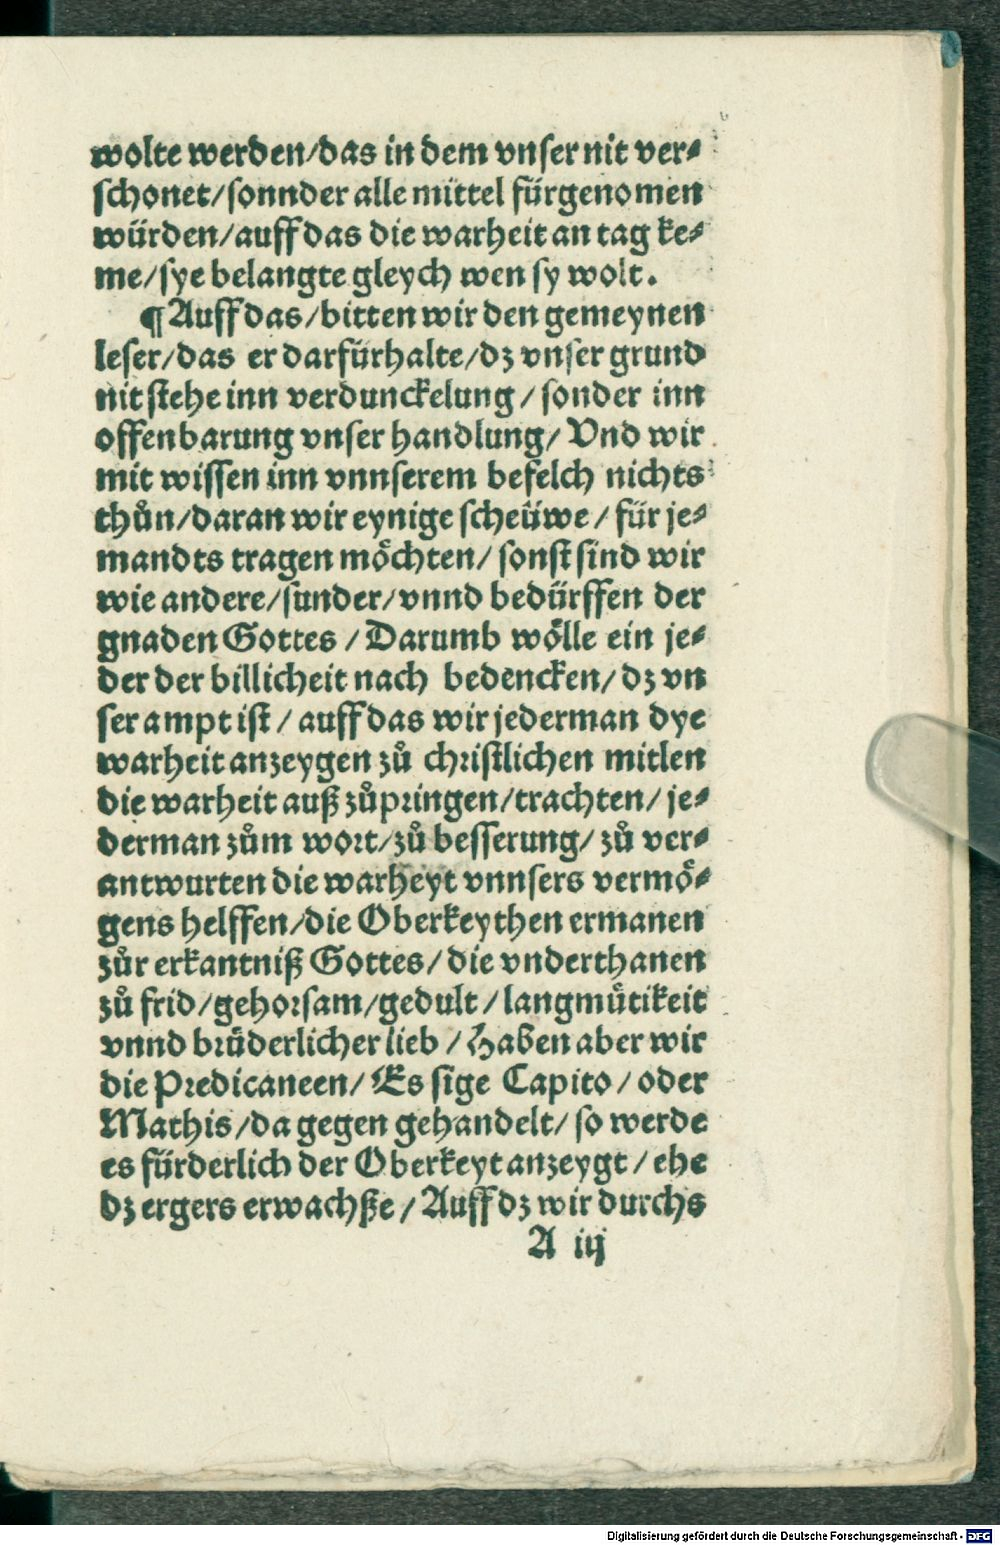 wolte werden/das in dem vnser nit ver⸗
schonet/sonnder alle mittel fürgenomen
würden/auff das die warheit an tag ke⸗
me/sye belangte gleych wen sy wolt.
¶ Auff das/bitten wir den gemeynen
leser/das er darfürhalte/dz vnser grund
nit stehe inn verdunckelung/sonder inn
offenbarung vnser handlung/Vnd wir
mit wissen inn vnnserem befelch nichts
thůn/daran wir eynige scheüwe/für je⸗
mandts tragen möchten/sonst sind wir
wie andere/sunder/vnnd bedürffen der
gnaden Gottes/Darumb wölle ein je⸗
der der billicheit nach bedencken/dz vn
ser ampt ist/auff das wir jederman dye
warheit anzeygen zů christlichen mitlen
die warheit auß zůpringen/trachten/je⸗
derman zům wort/zů besserung/zů ver⸗
antwurten die warheyt vnnsers vermö⸗
gens helffen/die Oberkeythen ermanen
zůr erkantniß Gottes/die vnderthanen
zů frid/gehorsam/gedult/langmütikeit
vnnd brüderlicher lieb/Haben aber wir
die Predicaneen/Es sige Capito/oder
Mathis/da gegen gehandelt/so werde
es fürderlich der Oberkeyt anzeygt/ehe
dz ergers erwachße/Auff dz wir durchs
A iij
Digitalisierung gefördert durch die Deutsche Forschungsgemeinschaft - DFG